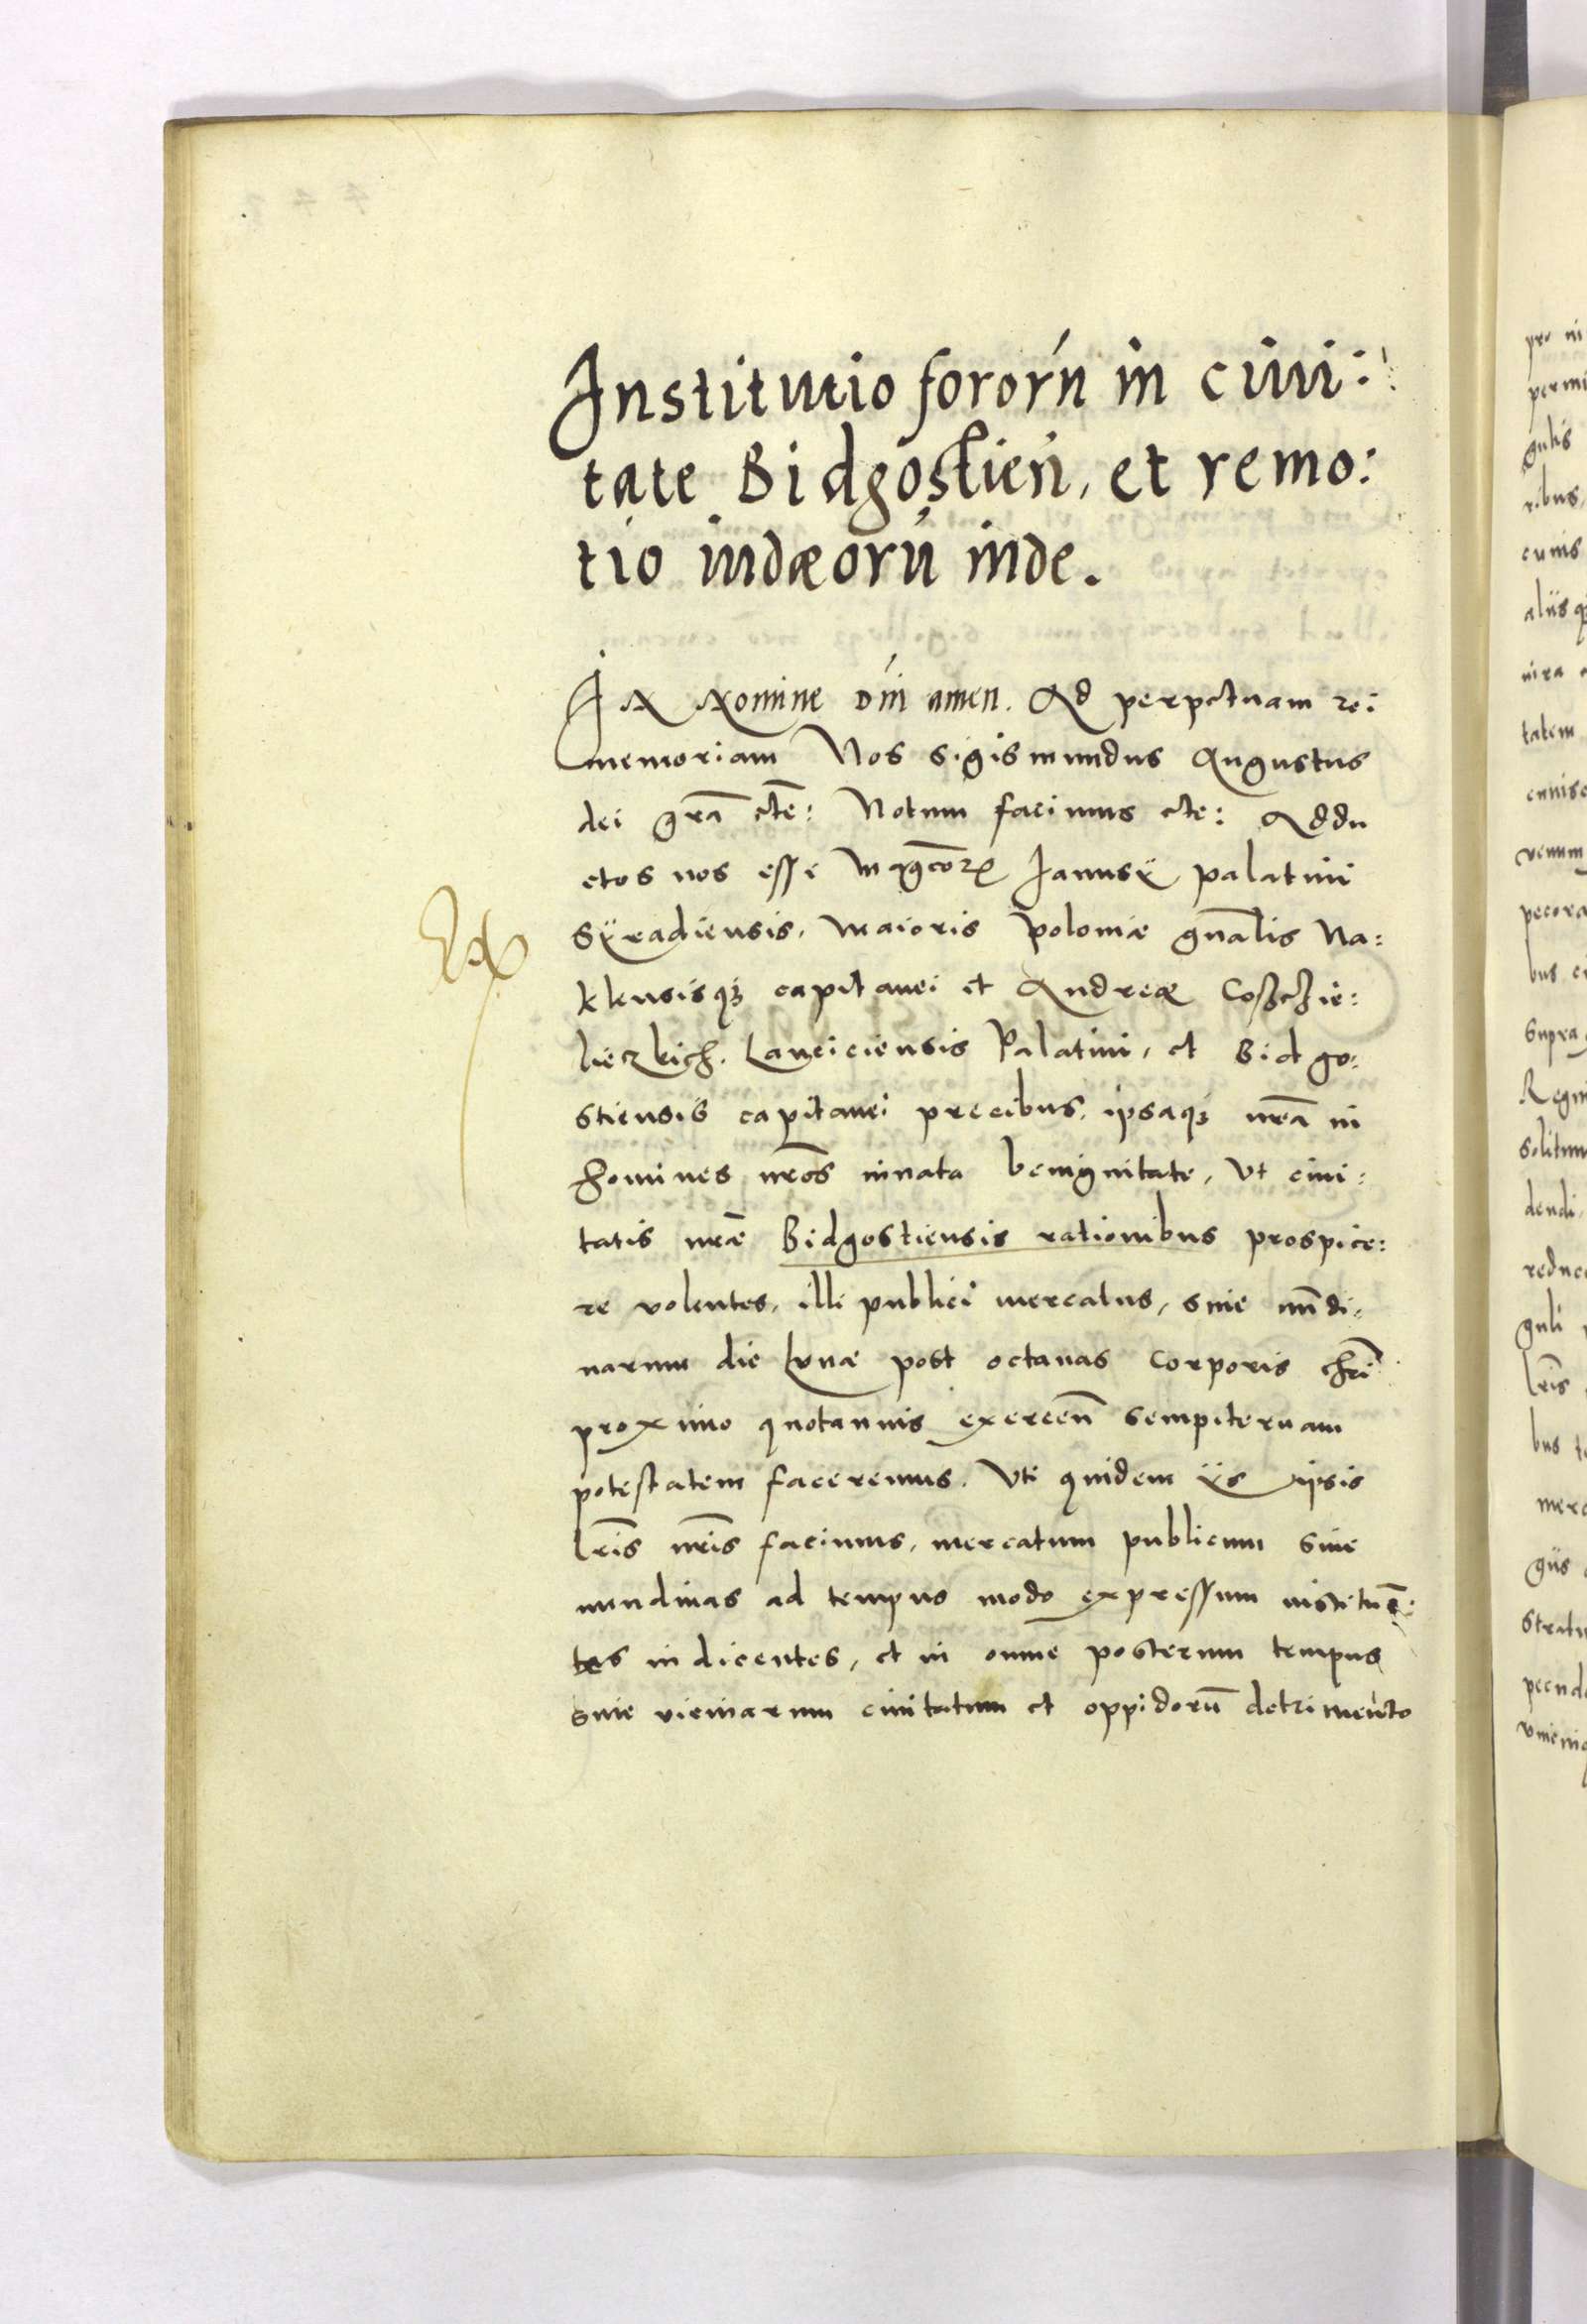 Institutio fororu in ciui:
tate Bidgostień, et remo:
tio iudæorū inde.
In Nomine Dn̄i amen. Ad perpetuam rei
memoriam Nos Sigismundus Augustus
dei gr̄a etc̄: Notum facimus etc: Addu
ctos nos esse Magcorꝝ Janusÿ palatini
Sÿradiensis, Maioris Poloniæ gn̄alis Na:
klensisqꝫ capitanei et Andreæ Coszczie:
lieczkich. Lanciciensis Palatini, et Bidgo:
stiensis capitanei precibus, ipsaqꝫ nr̄a in
homines nr̄os innata benignitate, Vt ciui:
tatis nr̄æ Bidgostiensis rationibus prospice:
re volentes, illi publici mercatus, siue nun̄di:
narum die Lunæ post octauas Corporis chr̄i
proximo quotannis exercen̄ sempiternam
potestatem faceremus. Vti quidem ÿs ipsis
lr̄is nr̄is facimus, mercatum publicum siue
nundinas ad tempus modo expressum instituē:
tes indicentes, et in omne posterum tempus
sine vicinarum ciuitatum et oppidorū detrimento
Ex
pro ni
permi
gulis
ribus,
cunis
aliisqꝫ
nira
tatem
cunisc
venum
pecora
bus ci
supra
Regni
solitum
dendi,
reduce
guli
lr̄is
bus te
merc
giis
stratu
pecud
vnicuiq